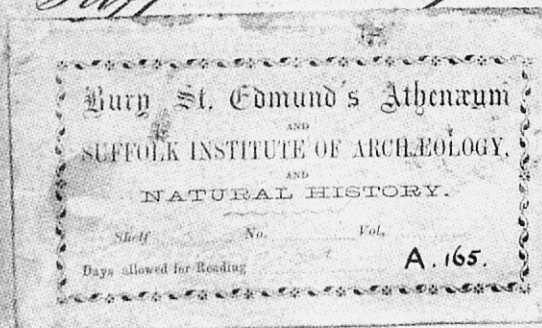 Bury St. Edmund's Athenæum
AND
SUFFOLK INSTITUTE OF ARCHÆOLOGY,
AND
NATURAL HISTORY.
Shelf No. Vol,
Days allowed for Reading A.165.